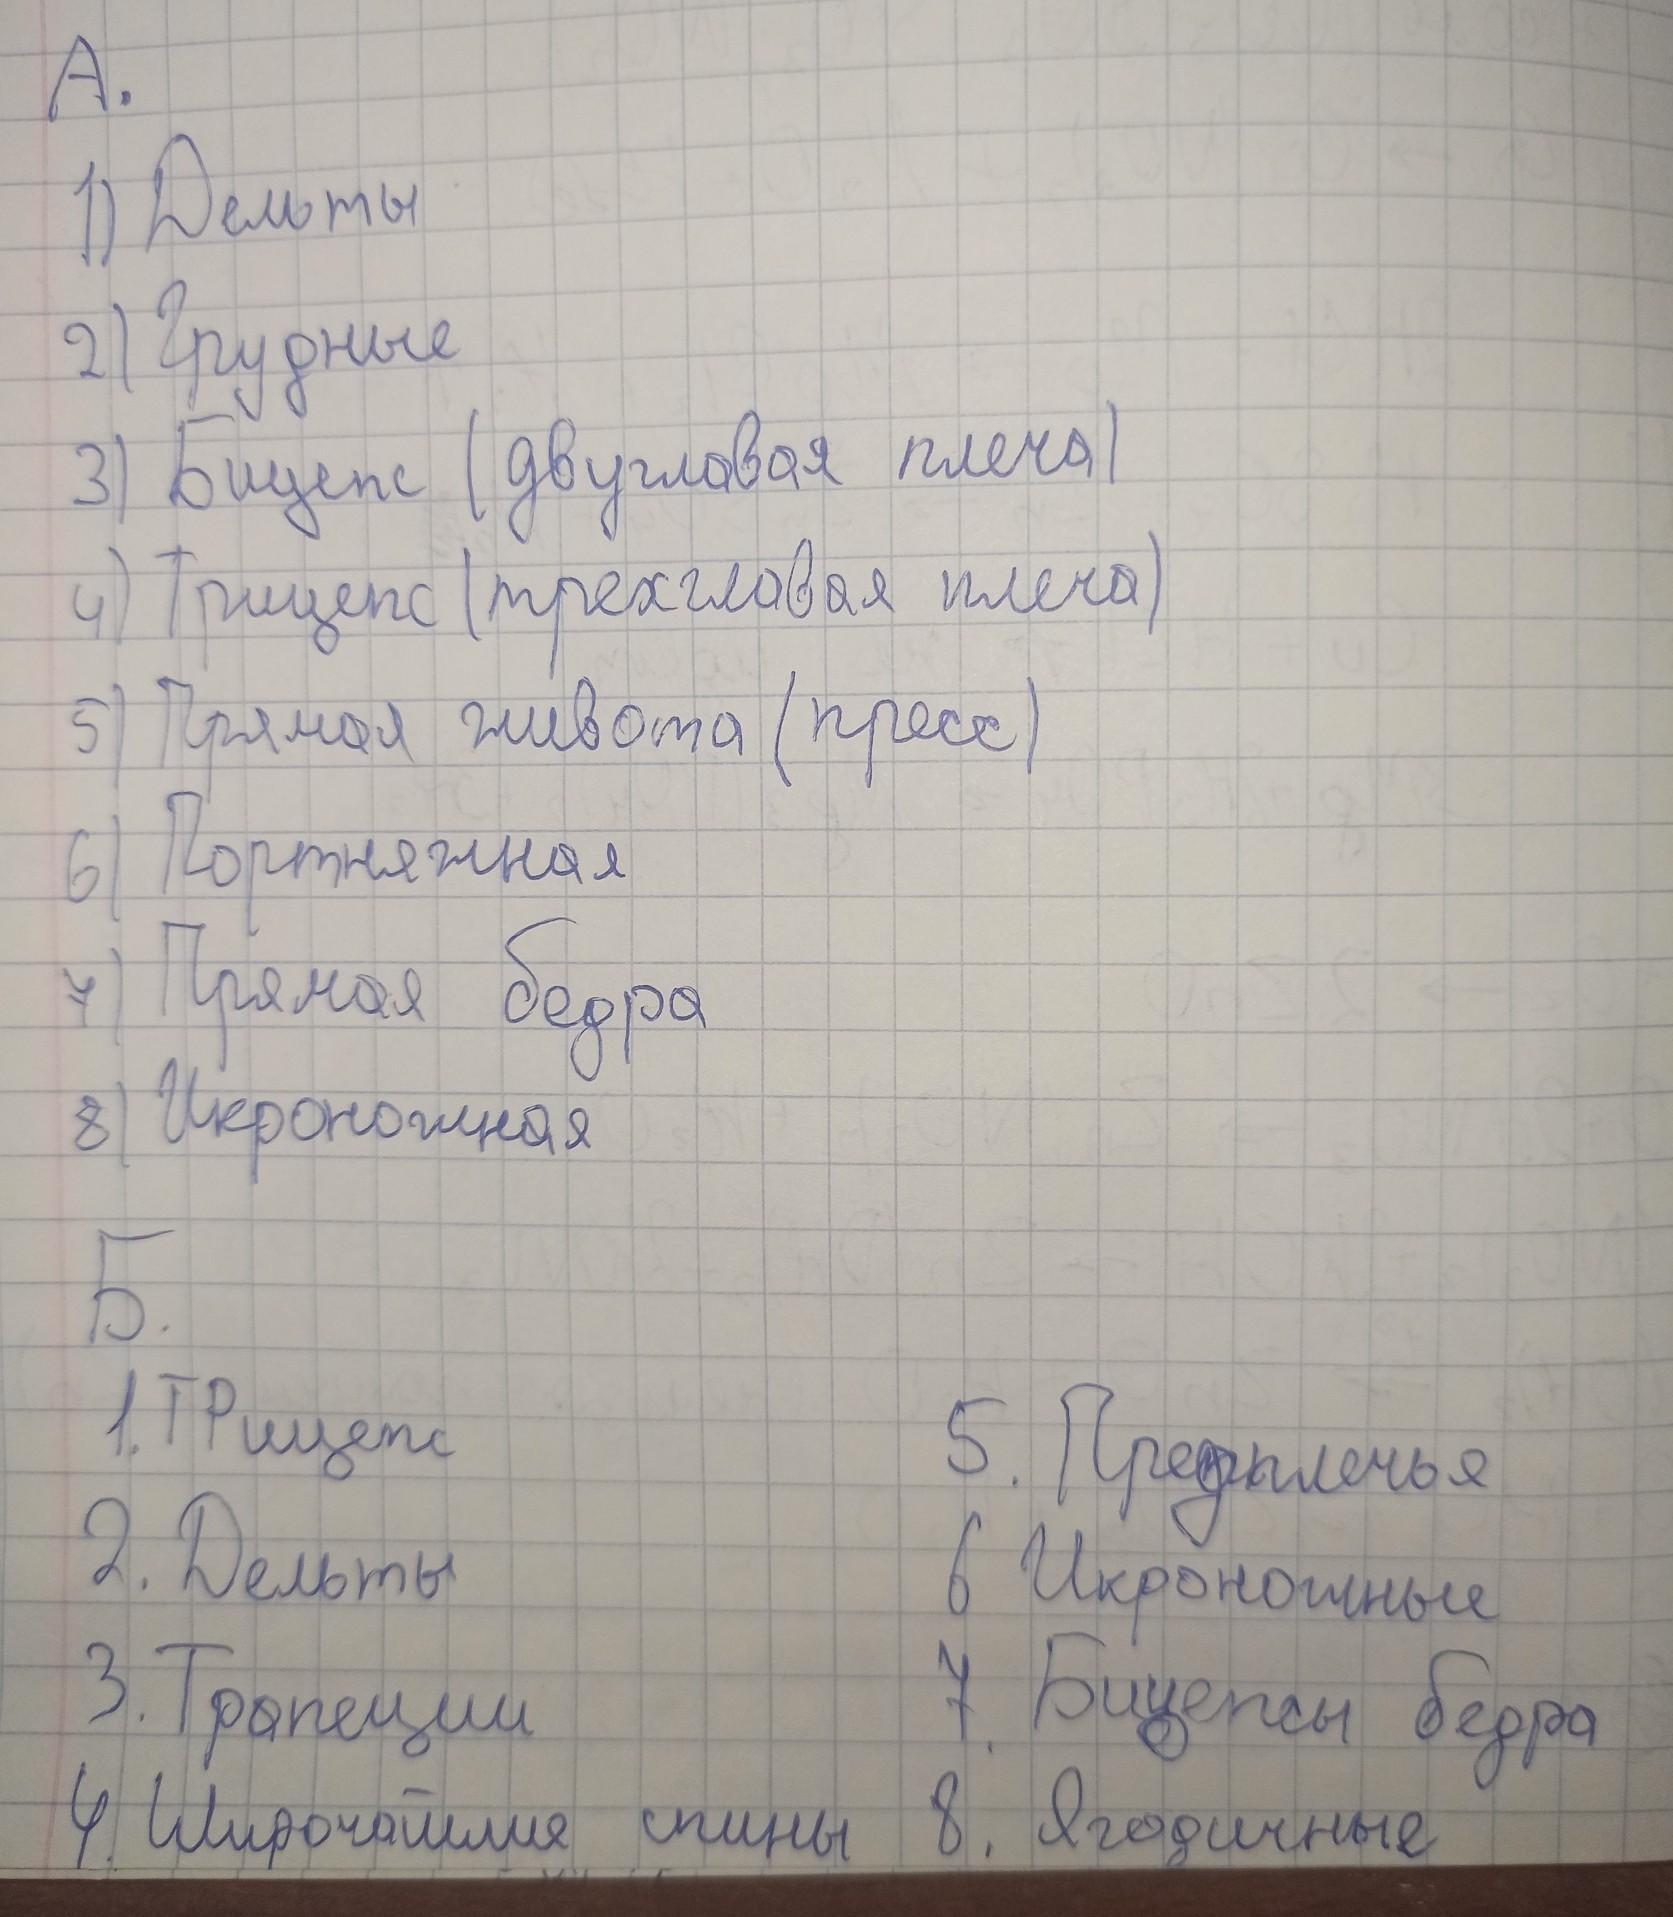 А.
1) Дельты
2) Грудные
3) Бицепс (двуглавая плеча)
4) Трицепс (трехглавая плеча)
5) Прямая живота (пресс)
6) Портняжная
7) Прямая бедра
8) Икроножная
Б.
1. ТРицепс
2. Дельты
3. Трапеции
4. Широчайшие спины
5. Предплечья
6 Икроножные
7. Бицепсы бедра
8. Ягодичные